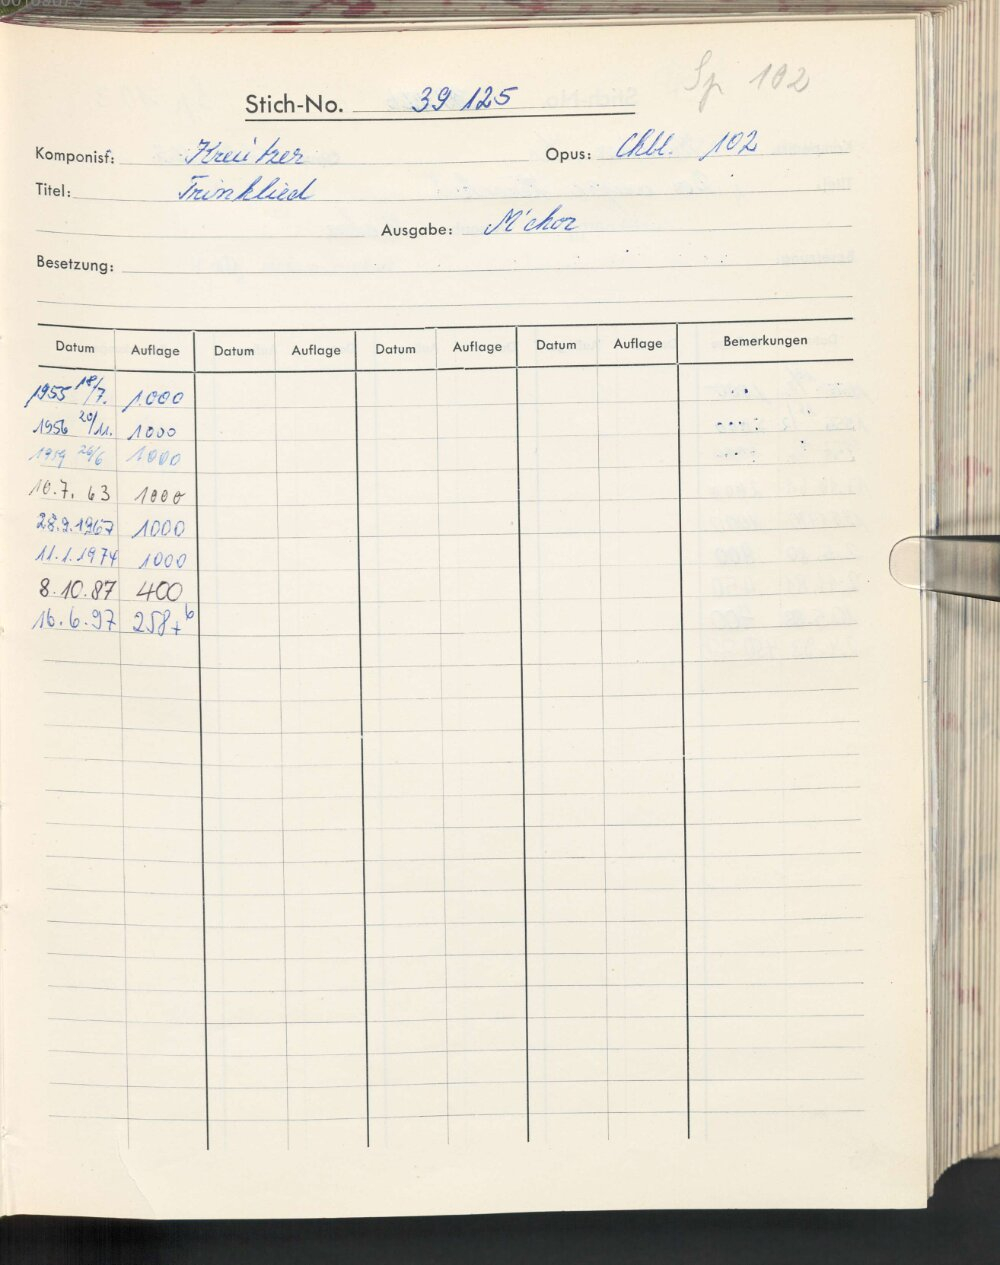 Sp 102
Stich-No. 39 125
Komponist: Kreutzer Opus: Chbl. 102
Titel: Trinklied
Ausgabe: M'chor
Besetzung:
Datum Auflage Datum Auflage Datum Auflage Datum Auflage Bemerkungen
1955 18/7. 1000
1956 20/11. 1000
1959 26/6 1000
10.7. 63 1000
28.9.1967 1000
11.1.1974 1000
8.10.87 400
16.6.97 258+6